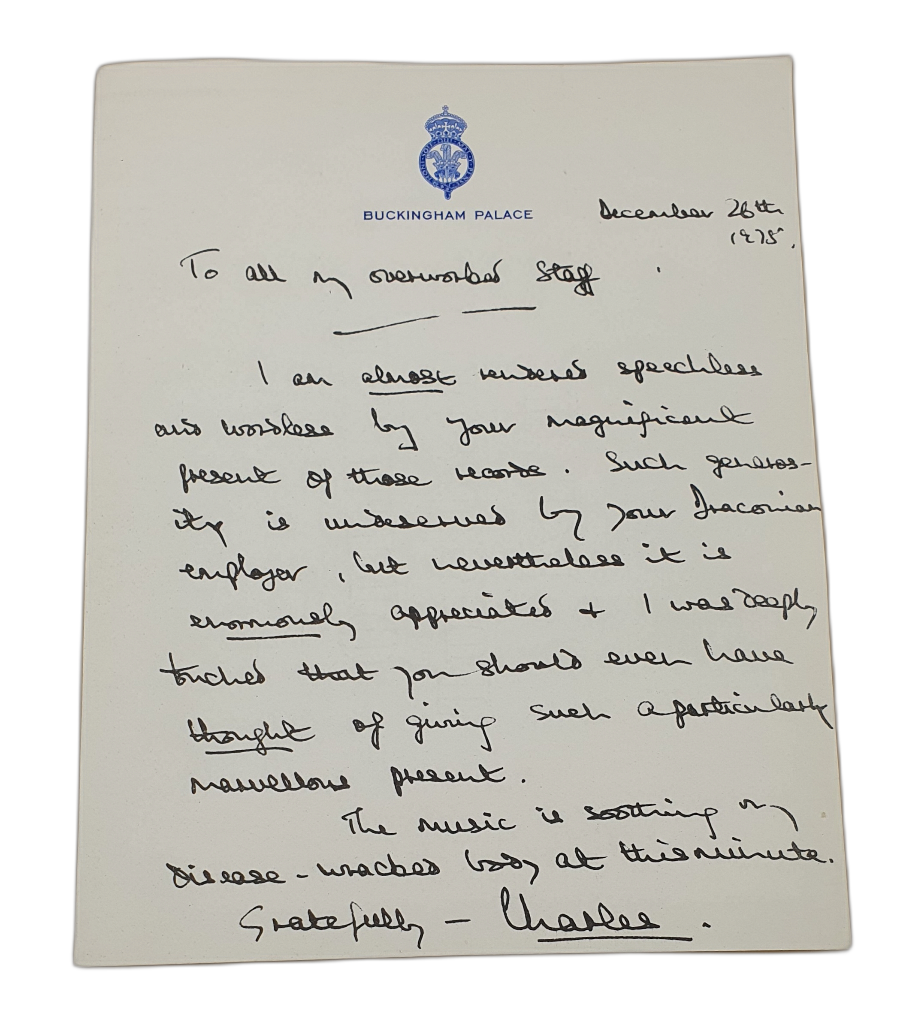 BUCKINGHAM PALACE
December 26th
1975.
To all my overworked staff
I am almost rendered speechless
and wordless by your magnificent
present of those records. Such generos-
ity is undeserved by your Draconian
employer, but nevertheless it is
enormously appreciated + I was deeply
touched that you should even have
thought of giving such a particularly
marvellous present.
The music is soothing my
disease-wracked body at this minute.
Gratefully - Charles.